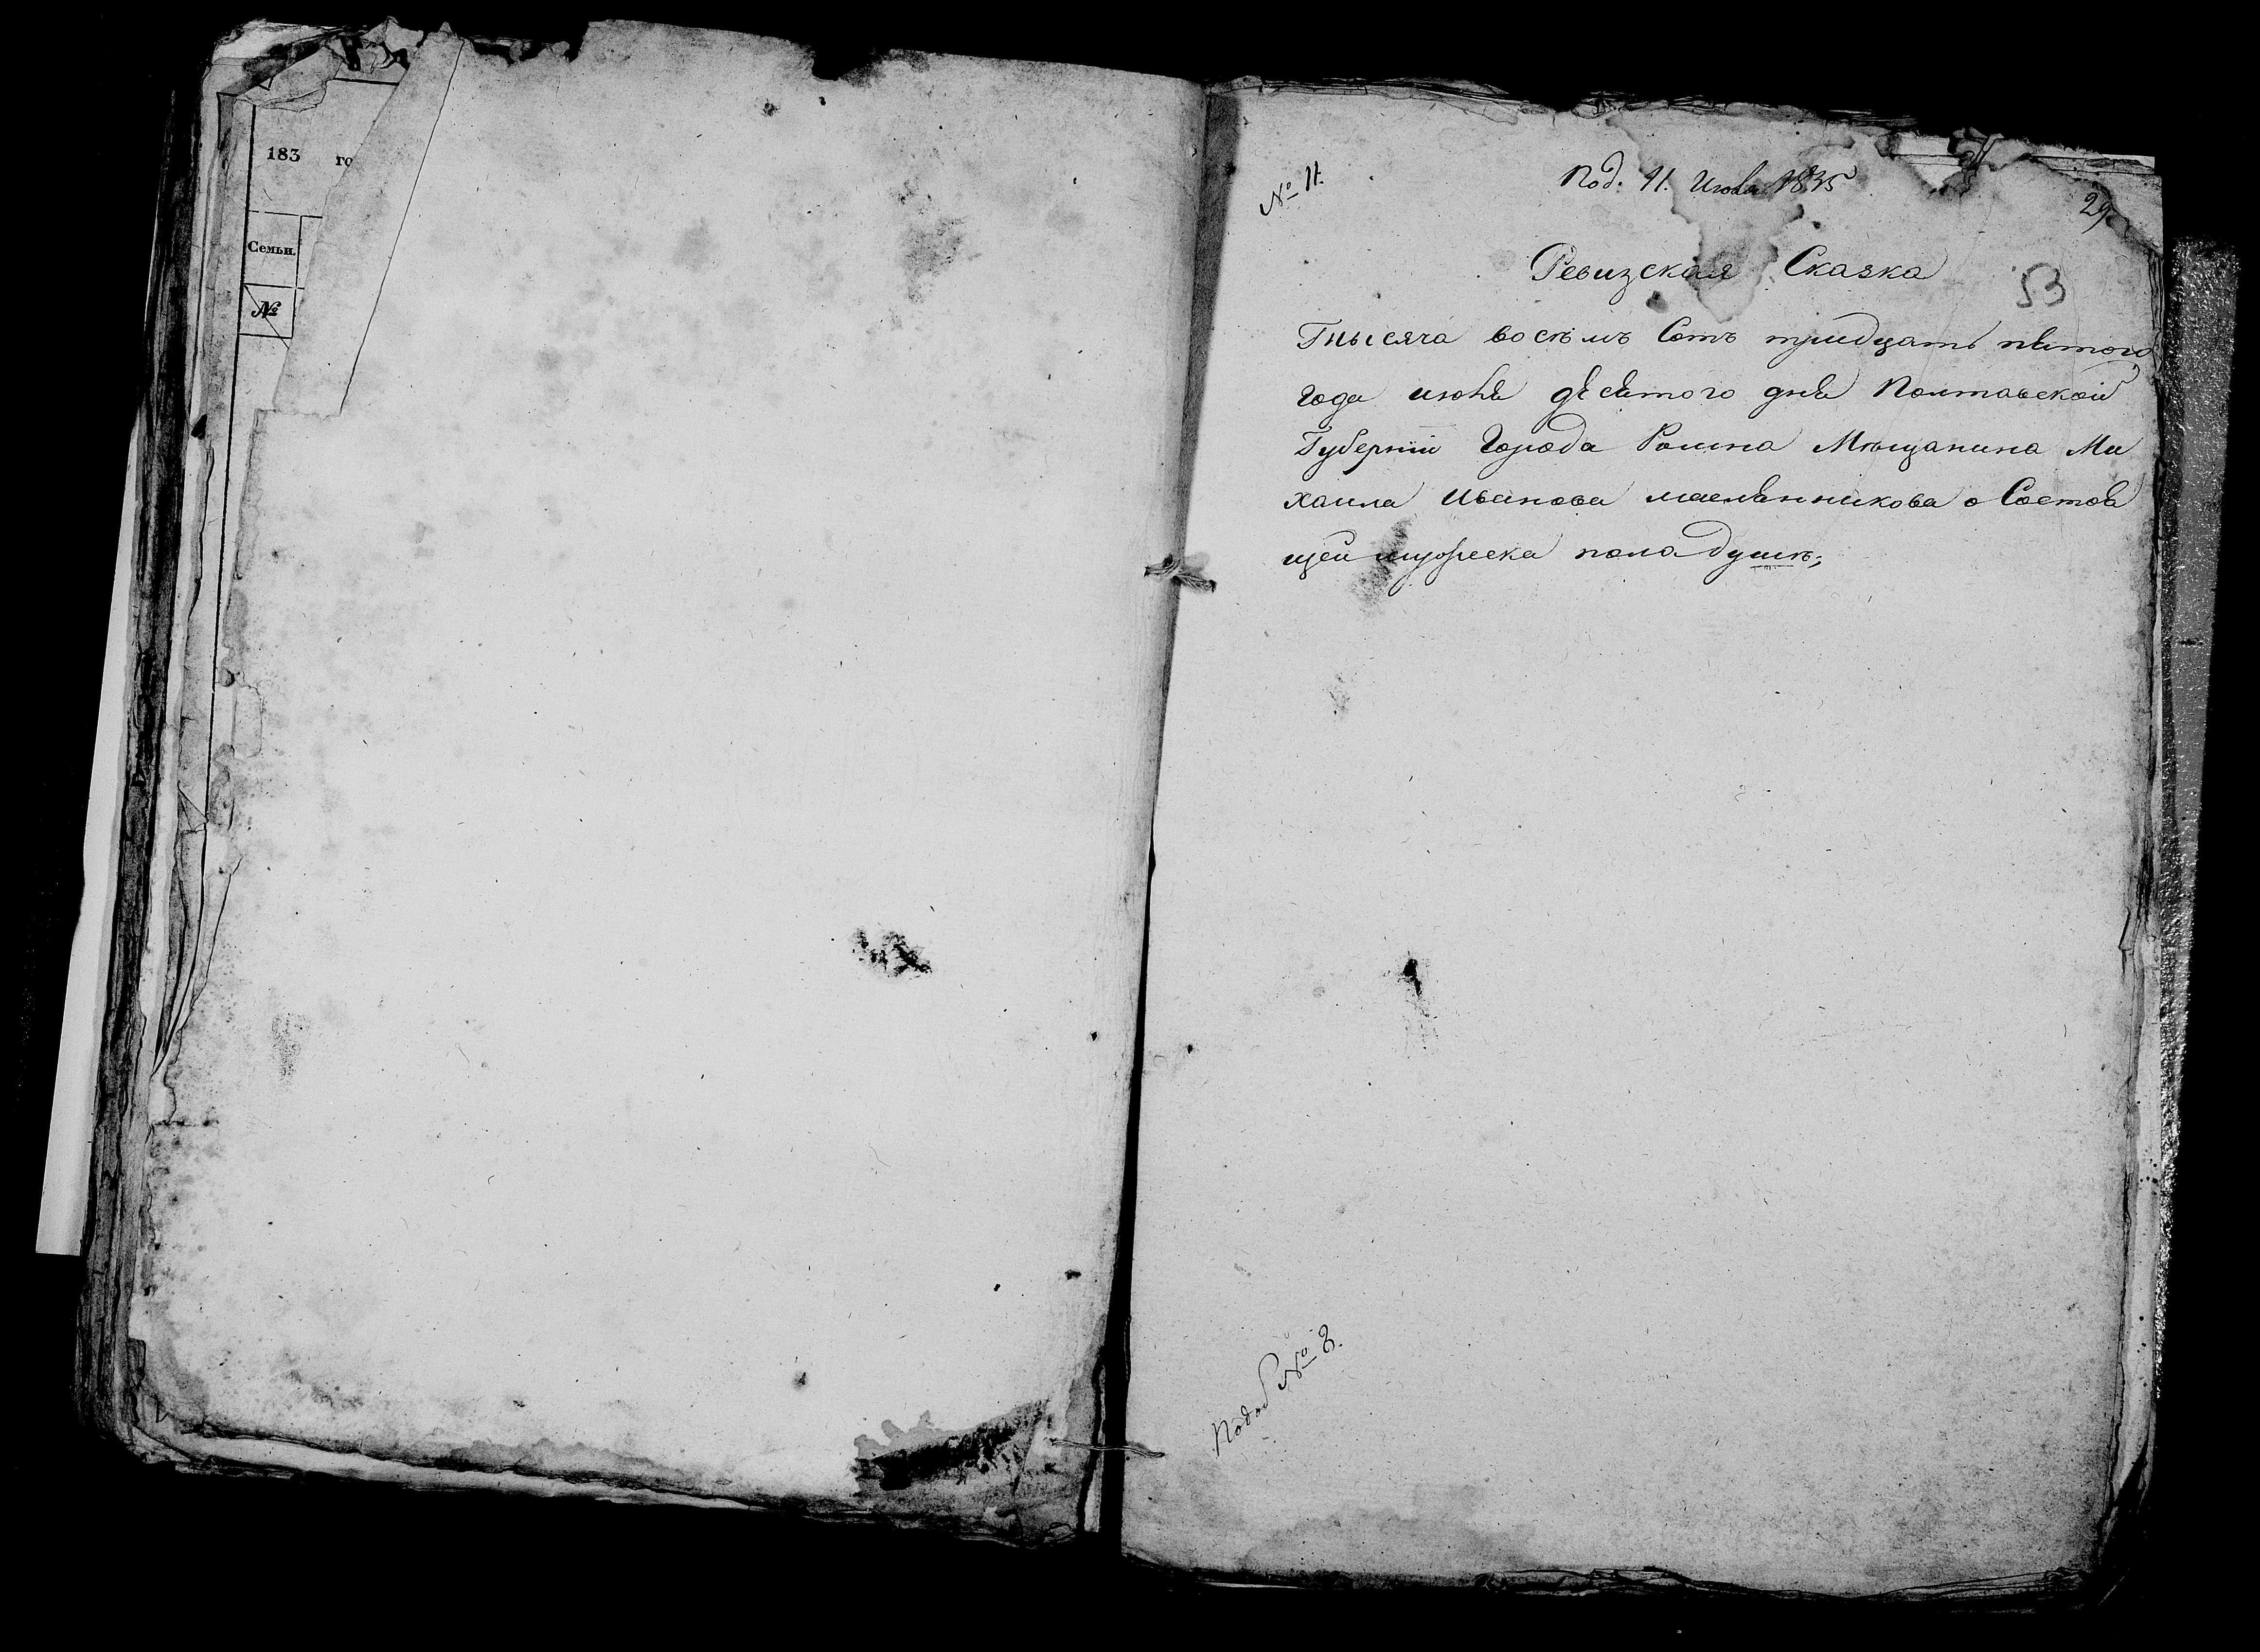 183 го
Семьи.
№
№ 11.
Под. 11. Июня 1835
29
Ревизская Сказка
53
Тысяча восемъ Сотъ тридцать пятого
года июня дѣсятого дня Полтавской
Губернiи Города Ромна Мѣщанина Ми
хаила Иванова маслянникова о Состоя
щей мужеска пола душѣ;
№ 3.